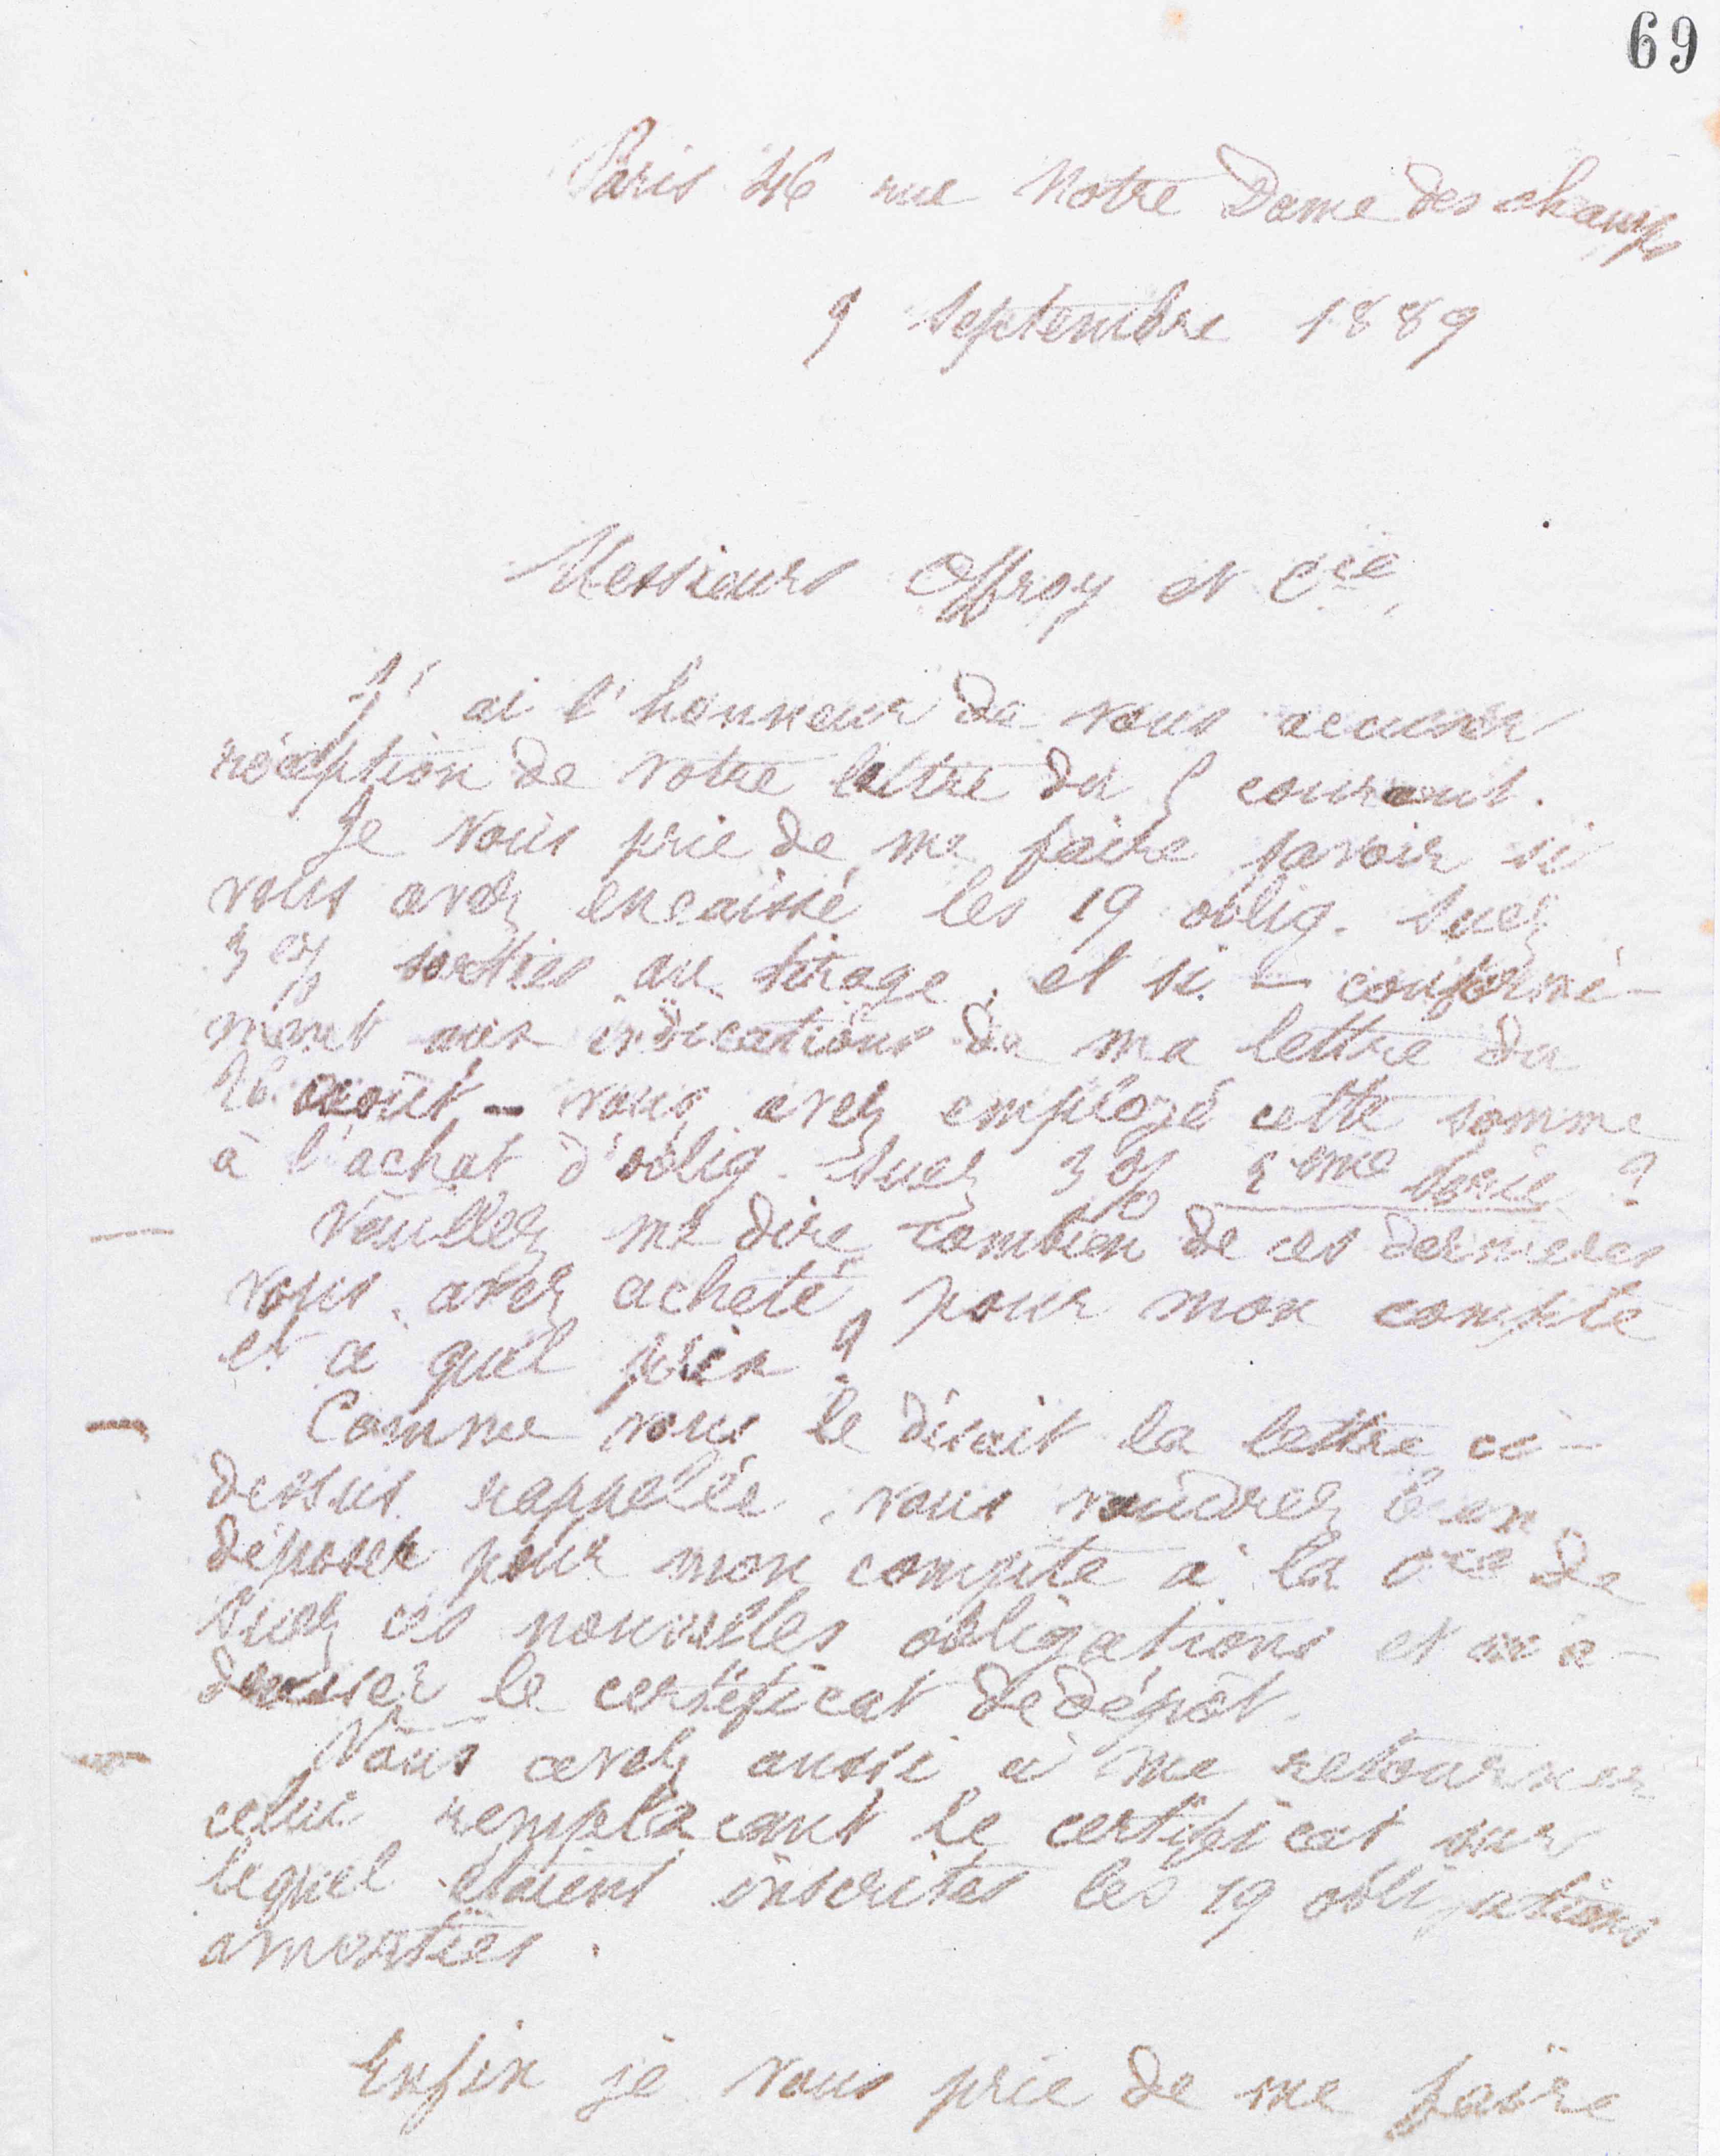 69
Paris 46 rue Notre Dame des champs
9 Septembre 1889
Messieurs Offroy et Cie,
J'ai l'honneur de vous accuser
réception de votre lettre du 5 courant.
Je vous prie de me faire savoir si
vous avez encaissé les 19 oblig. Suez
3 % sorties au tirage, et si - conformé-
ment aux indications de ma lettre du
août - vous avez employé cette somme
à l'achat d'oblig. Suez 3 % 2eme Série ?
Veuillez me dire combien de ces dernieres
vous avez acheté pour mon compte
et à quel prix ?
Comme vous le disait la lettre ci-
dessus rappelée, vous voudrez bien
déposer pour mon compte à la Cie de
Suez ces nouvelles obligations et m'a-
dresser le certificat de dépôt.
Vous avez aussi à me retourner
celui remplacant le certificat sur
lequel étaient inscrites les 19 obligations
amorties.
Enfin je vous prie de me faire